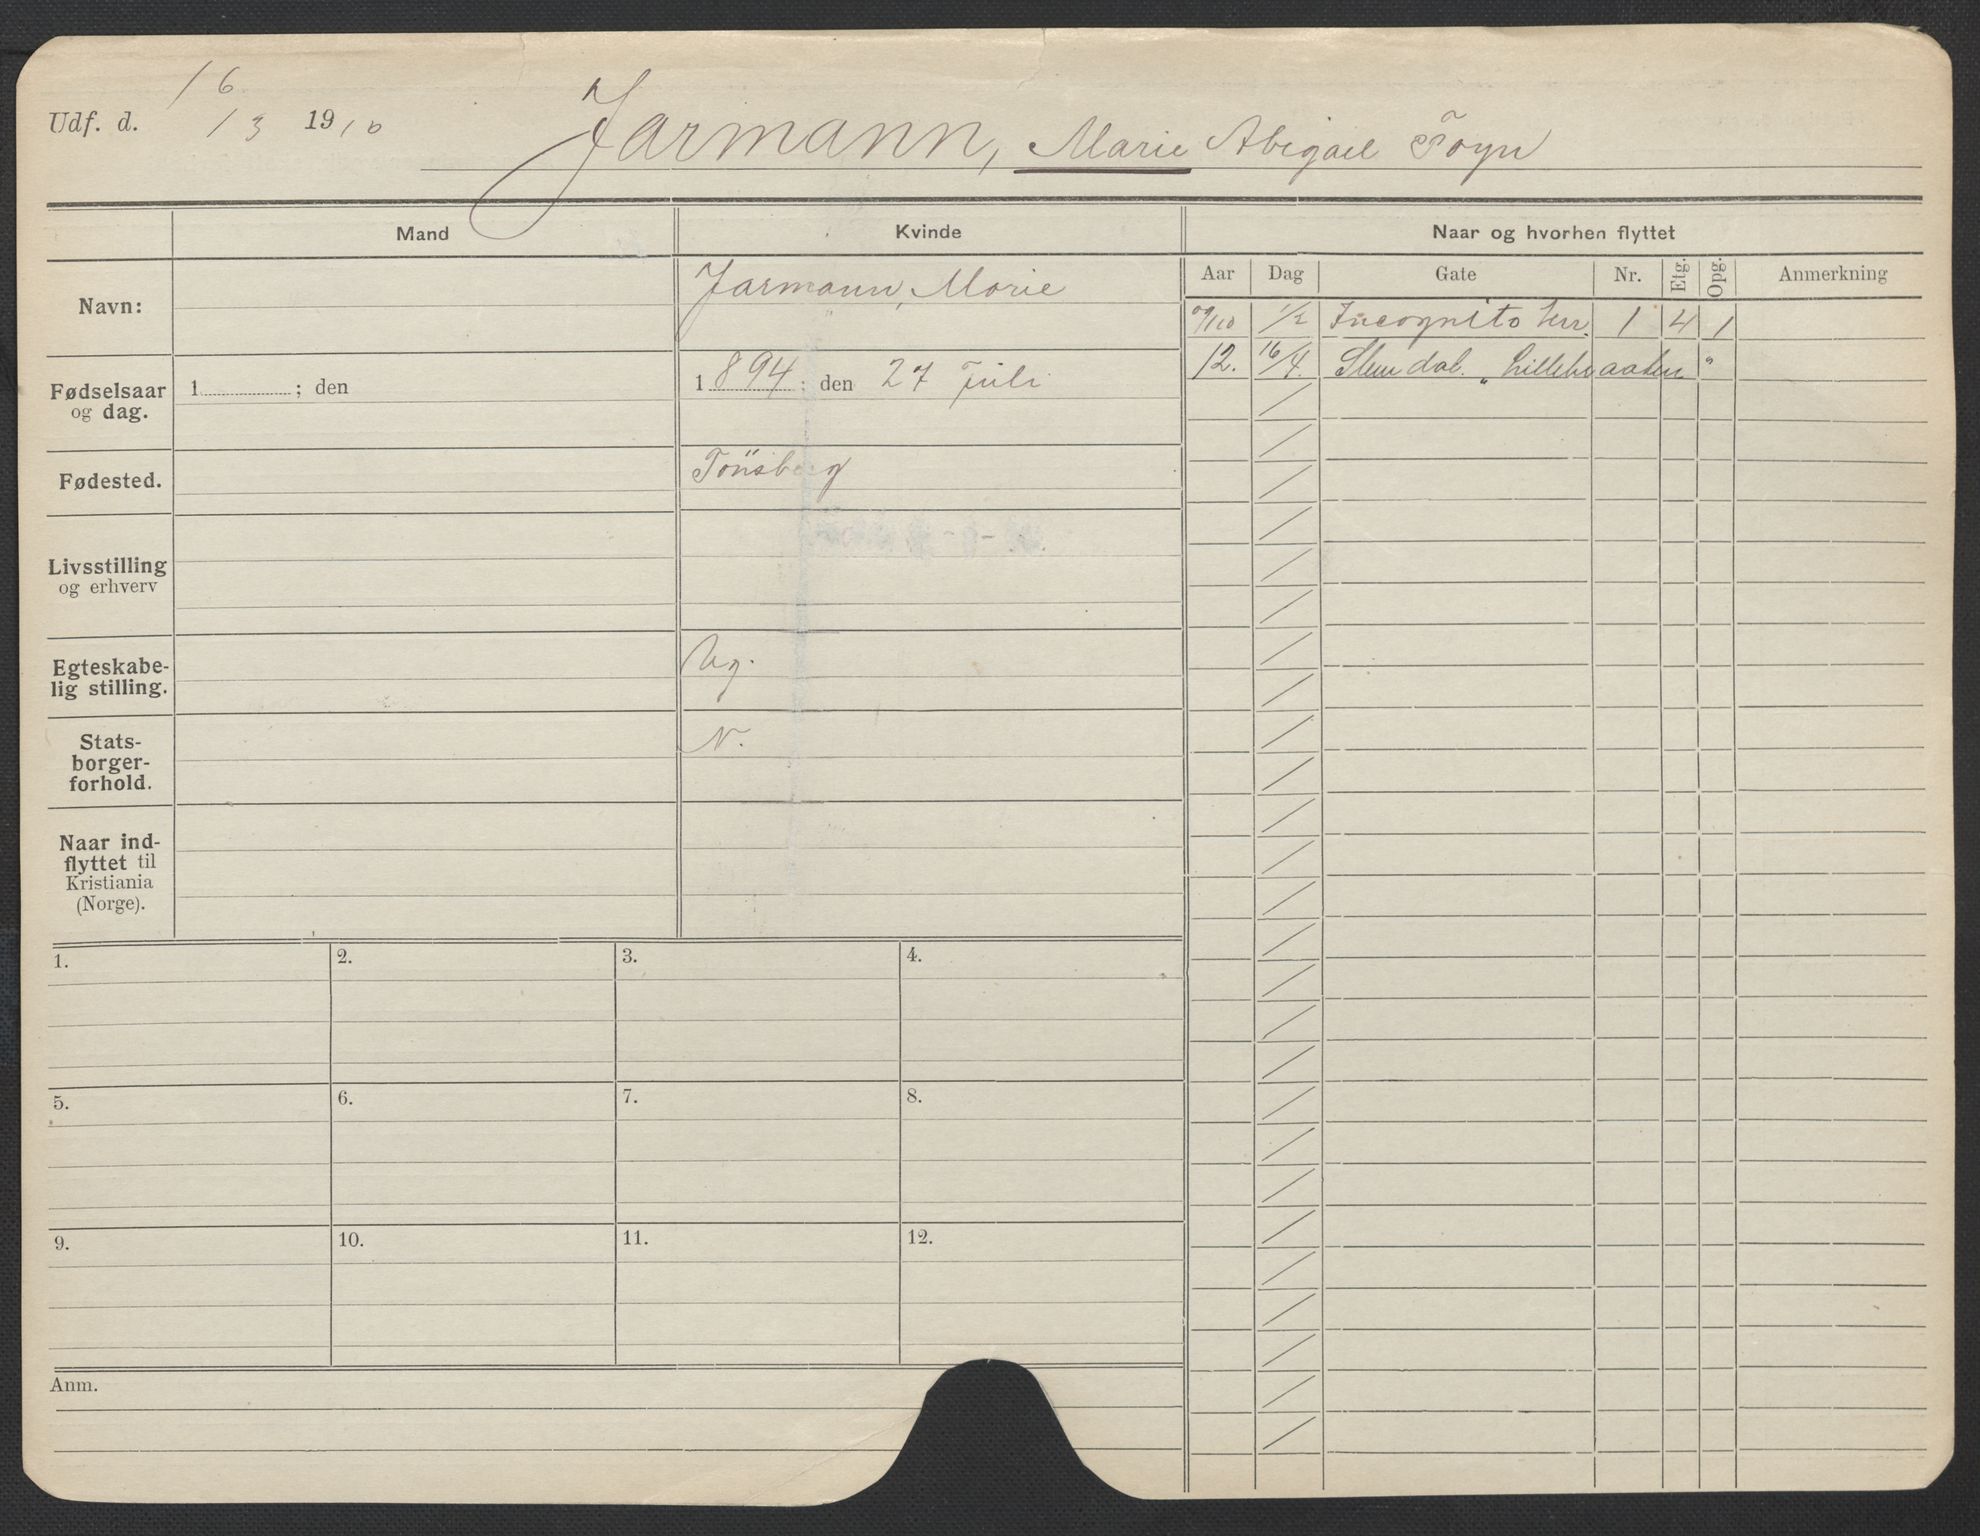 Udf. d. 16/3 1910 Jarmann, Marie Abigael Foyn
Mand Kvinde Naar og hvorhen flyttet
Aar Dag Gate Nr. Etg. Opg. Anmerkning
Navn: Jarmann, Marie
1/2 Incognito terr. 1 4 1
12. 16/4. Slemdal. " Lillebraaten "
Fødselsaar
og dag.
1 ; den
1894; den 27 Juli
Fødested. Tönsberg
Livsstilling
og erhverv
Egteskabe-
lig stilling.
Ug.
Stats-
borger-
forhold.
N.
Naar ind-
flyttet til
Kristiania
(Norge).
1. 2. 3. 4.
5. 6. 7. 8.
9. 10. 11. 12.
Anm.